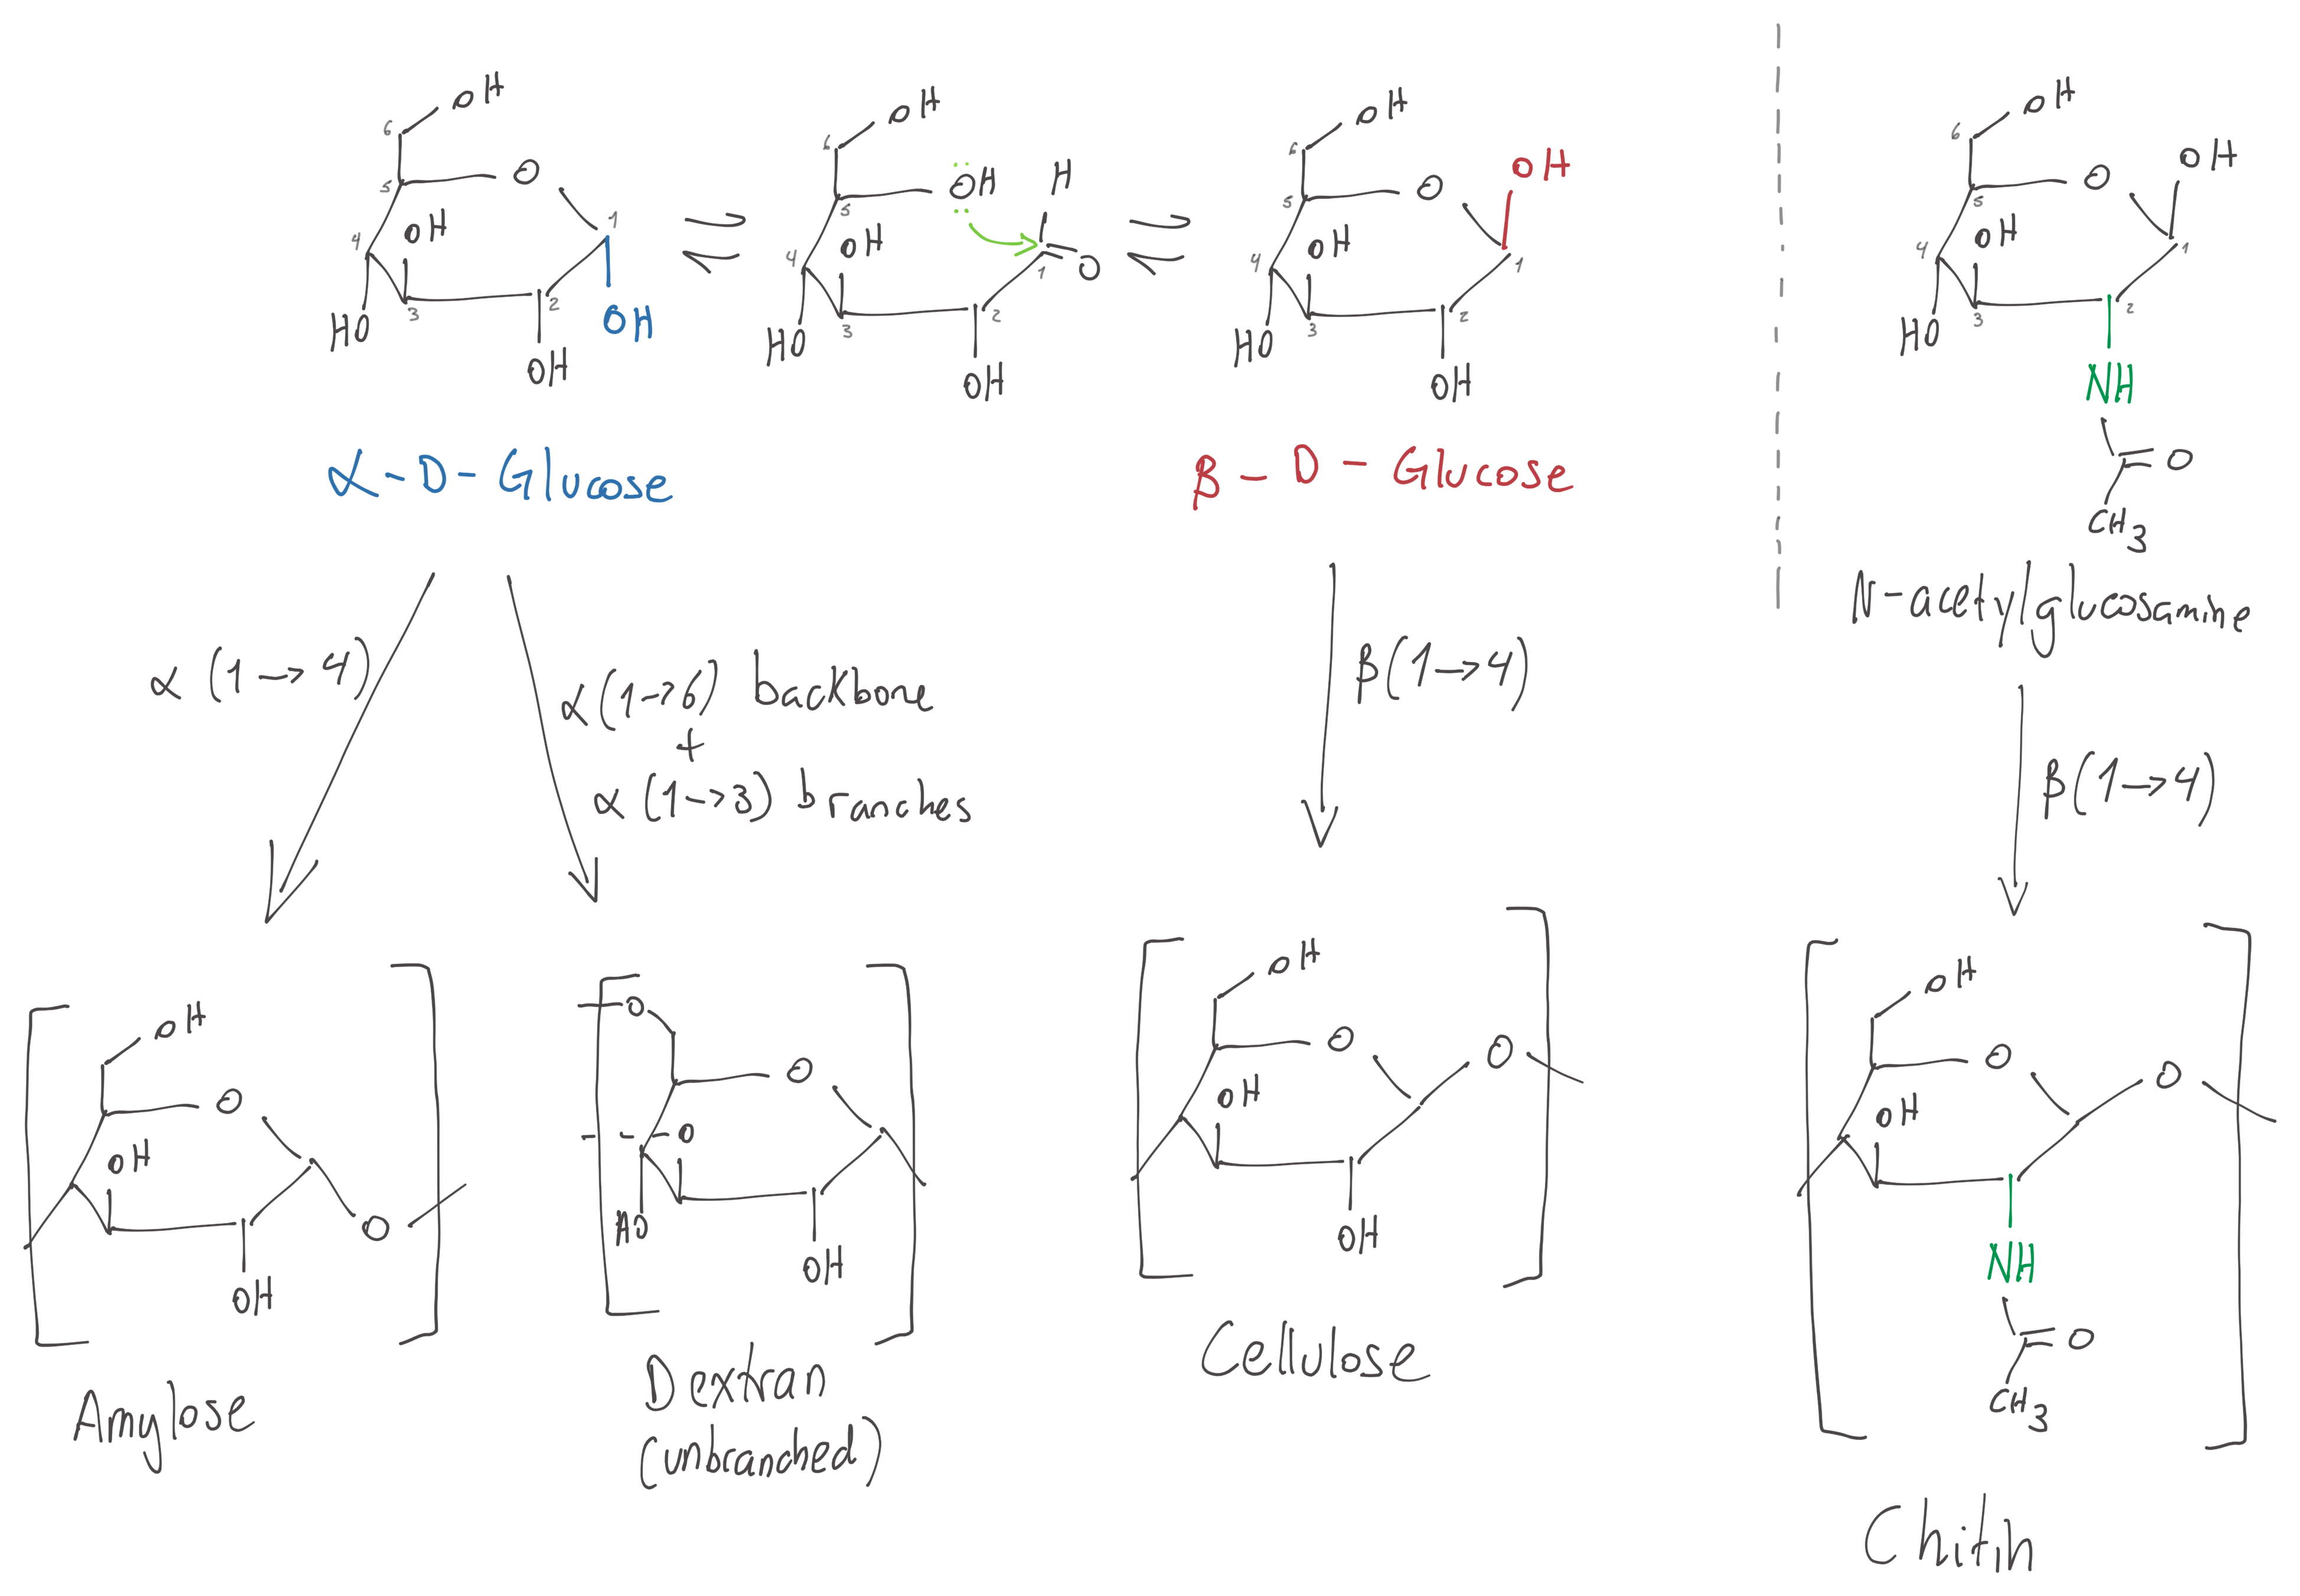 OH
6
5
O
1
4
OH
HO
3
2
OH
OH
α-D-Glucose
OH
6
5
OH
H
4
OH
1
O
HO
3
2
OH
OH
6
5
O
OH
4
OH
1
HO
3
2
OH
β-D-Glucose
OH
6
5
O
OH
4
OH
1
HO
3
2
NH
O
CH3
N-acetylglucosamine
α (1→4)
α(1→6) backbone
+
α (1→3) branches
β(1→4)
β(1→4)
OH
O
OH
O
OH
Amylose
O
O
O
HO
OH
Dextran
(unbranched)
OH
O
O
OH
OH
Cellulose
OH
O
O
OH
NH
O
CH3
Chitin